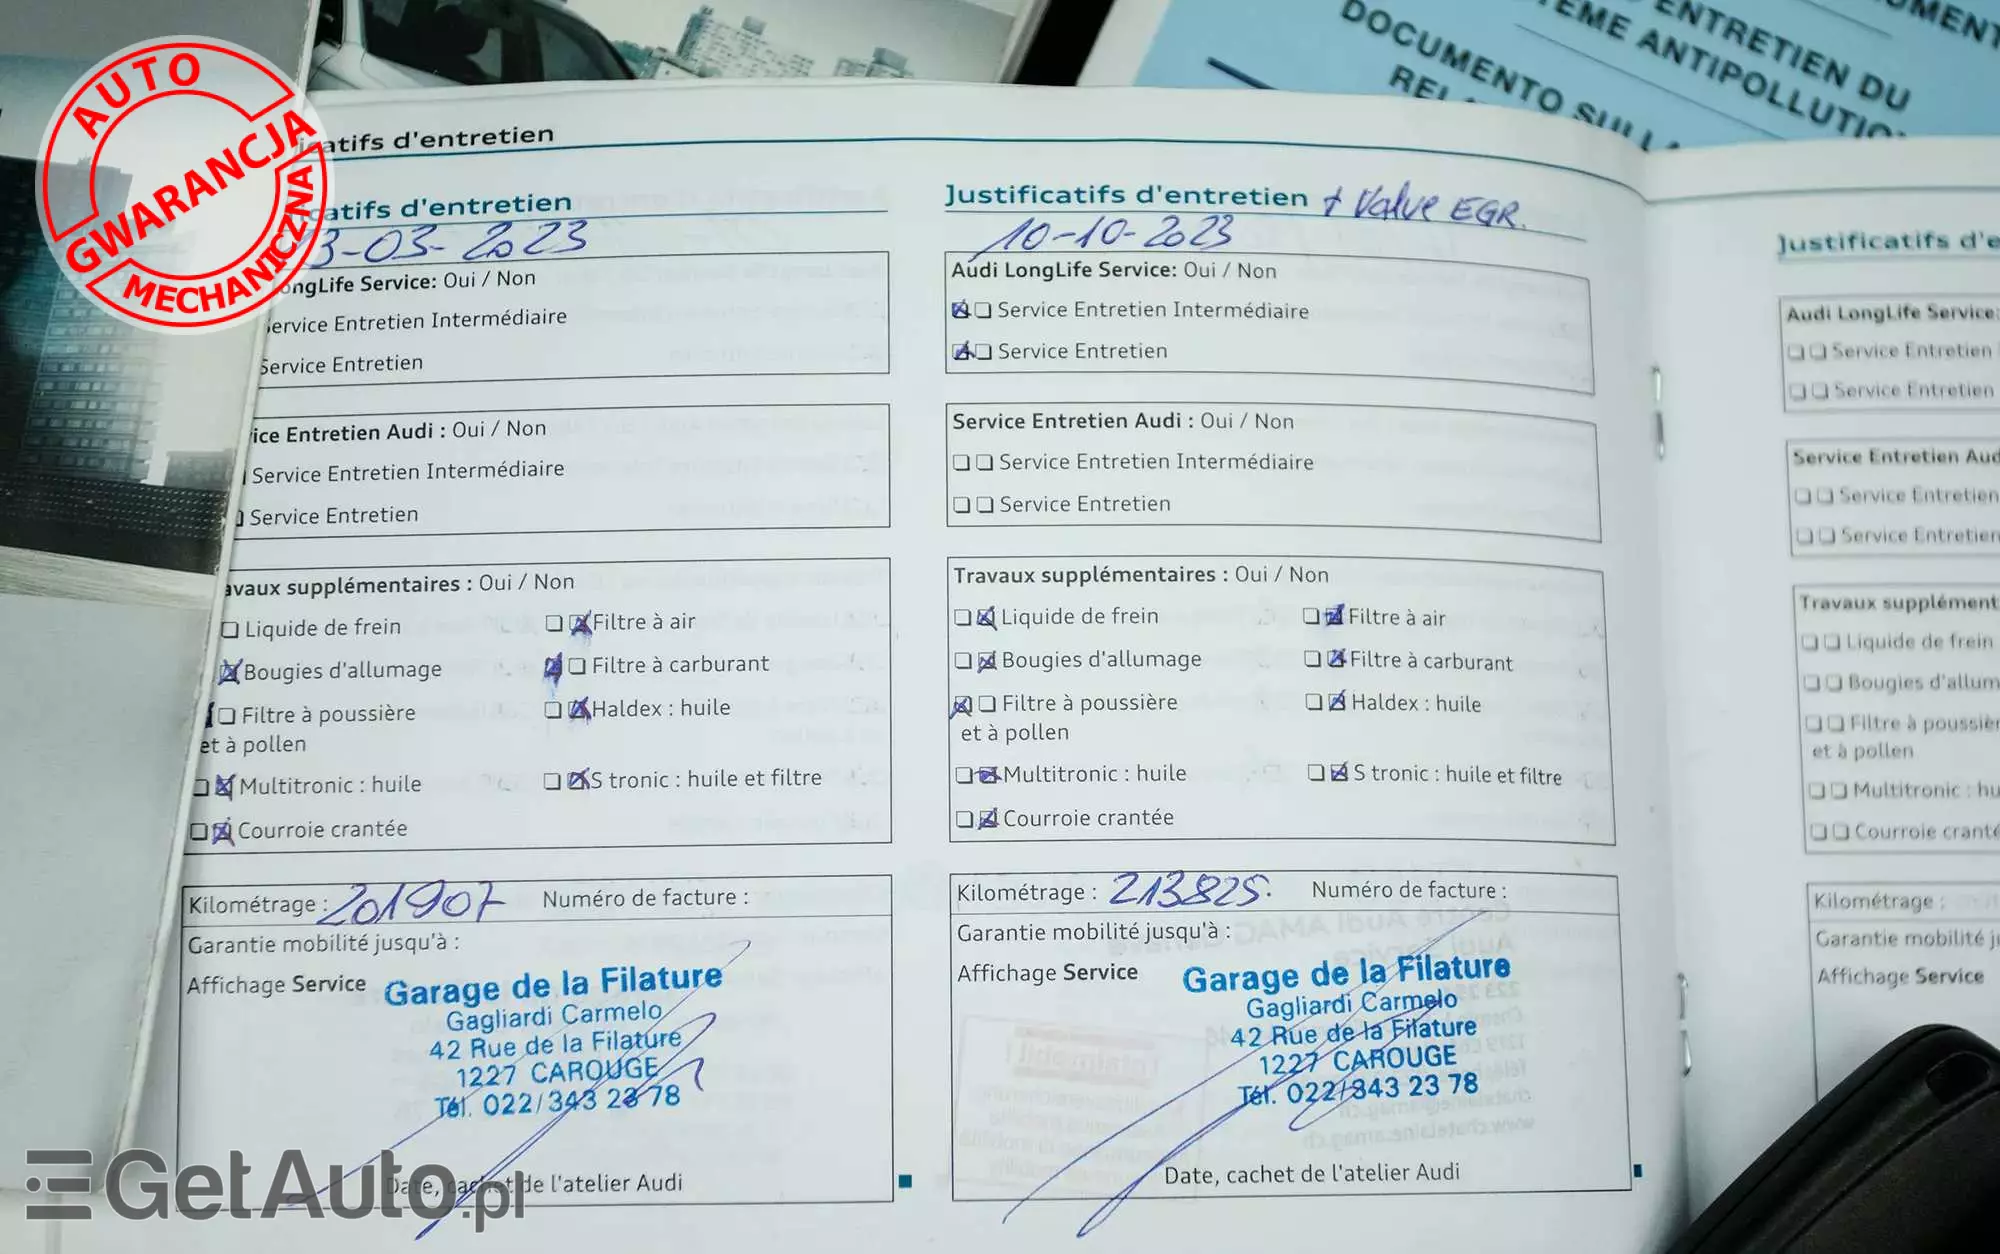 AUTO
GWARANCJA
MECHANICZNA
DOCUMENTO SULLA
ENTRETIEN DU
ANTIPOLLUTION
icatifs d'entretien
icatifs d'entretien
13-03-2023
ongLife Service: Oui / Non
Service Entretien Intermédiaire
Service Entretien
ice Entretien Audi : Oui / Non
Service Entretien Intermédiaire
Service Entretien
avaux supplémentaires : Oui / Non
Liquide de frein
Filtre à air
Bougies d'allumage
Filtre à carburant
Filtre à poussière
et à pollen
Haldex : huile
Multitronic : huile
S tronic : huile et filtre
Courroie crantée
Kilométrage : 201907
Numéro de facture :
Garantie mobilité jusqu'à :
Affichage Service
Garage de la Filature
Gagliardi Carmelo
42 Rue de la Filature
1227 CAROUGE
Tél. 022/343 23 78
Date, cachet de l'atelier Audi
Justificatifs d'entretien + Valve EGR.
10-10-2023
Audi LongLife Service: Oui / Non
Service Entretien Intermédiaire
Service Entretien
Service Entretien Audi : Oui / Non
Service Entretien Intermédiaire
Service Entretien
Travaux supplémentaires : Oui / Non
Liquide de frein
Filtre à air
Bougies d'allumage
Filtre à carburant
Filtre à poussière
et à pollen
Haldex : huile
Multitronic : huile
S tronic : huile et filtre
Courroie crantée
Kilométrage : 213825.
Numéro de facture :
Garantie mobilité jusqu'à :
Affichage Service
Garage de la Filature
Gagliardi Carmelo
42 Rue de la Filature
1227 CAROUGE
Tél. 022/343 23 78
Date, cachet de l'atelier Audi
Justificatifs d'e
Audi LongLife Service:
Service Entretien
Service Entretien
Service Entretien Aud
Service Entretien
Service Entretien
Travaux supplément
Liquide de frein
Bougies d'allum
Filtre à poussièr
et à pollen
Multitronic : hu
Courroie cranté
Kilométrage :
Garantie mobilité ju
Affichage Service
GetAuto.pl